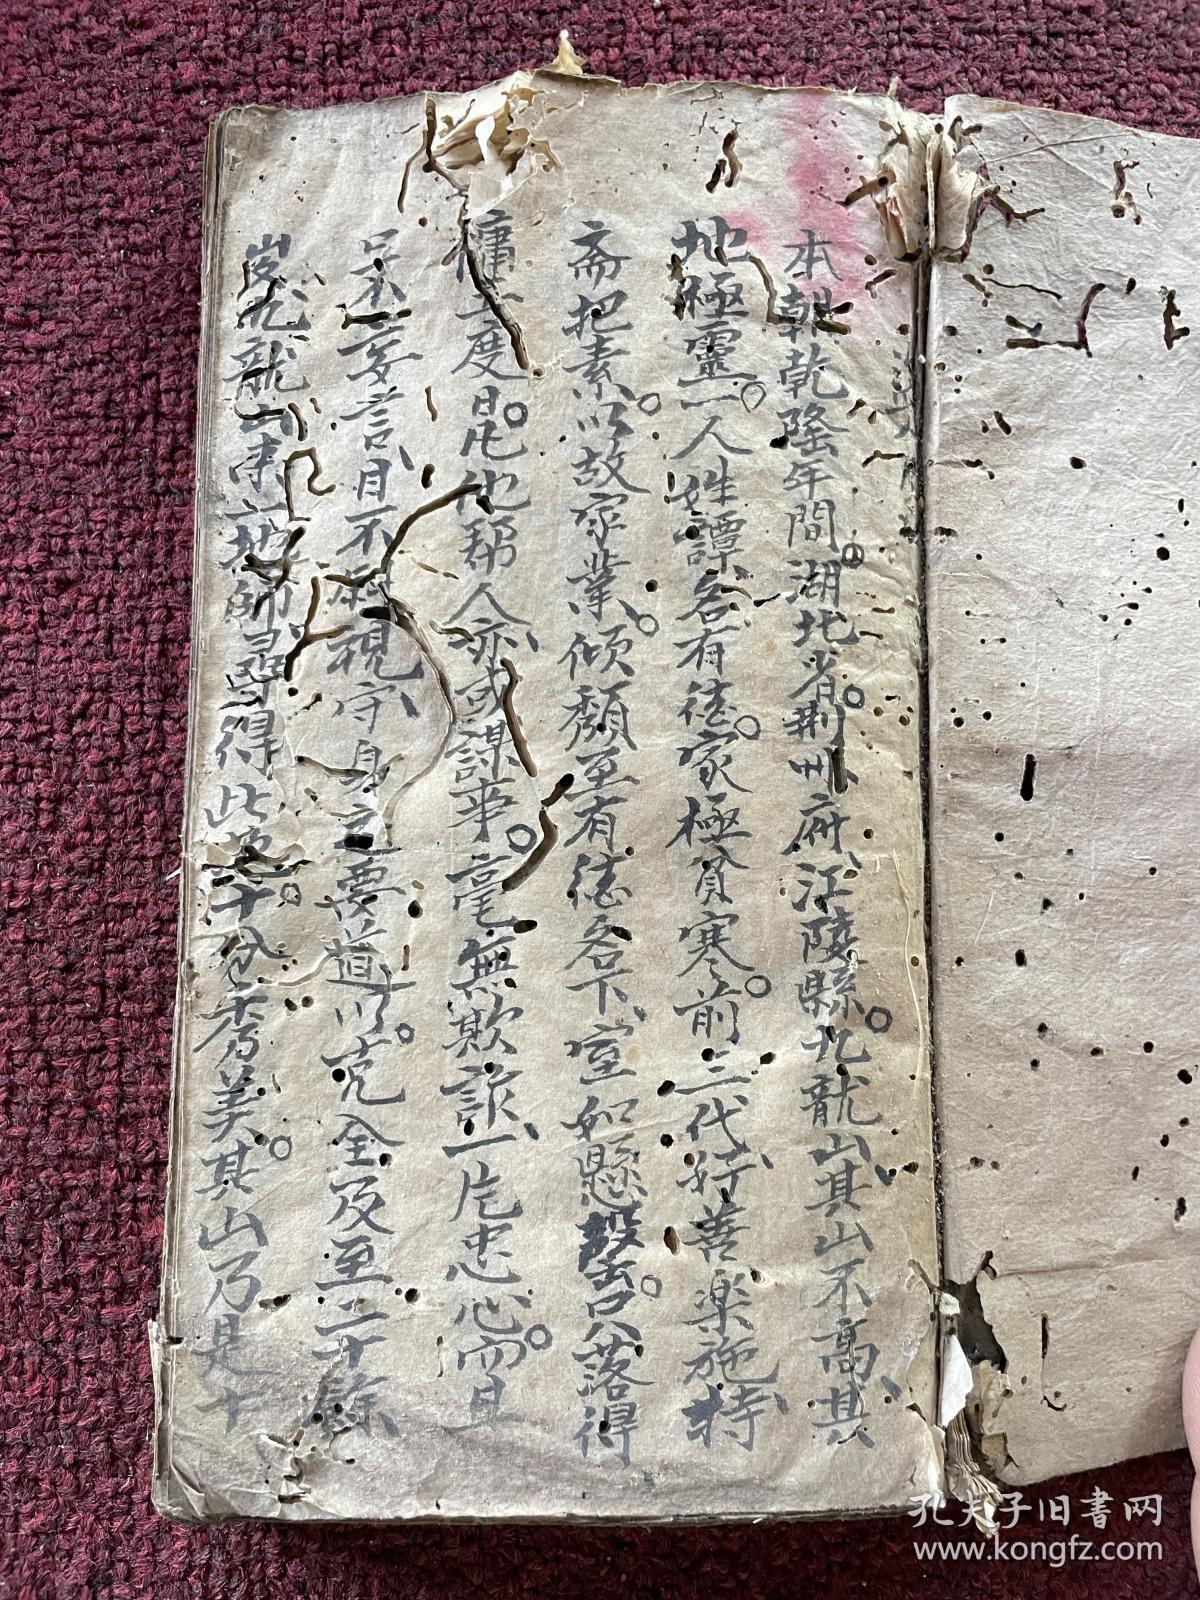 本朝乾隆年間。湖北省。荆州府、江陵縣。九龍山、其山不高、其
地極靈。一人姓譚、名有德。家極貧寒。前三代、好善楽施、持
斋把素。以故家業。倾頽至有德名下、室如懸罄。只落得
傭工度昆。他帮人、亦或謀事。毫無欺詐、一片忠心。而且
口不妄言、目不斜視、守身之要道。以克全及至二十餘
歲。九龍山來一地師、尋得此地。十分秀美。其山乃是十
孔夫子旧書网
www.kongfz.com